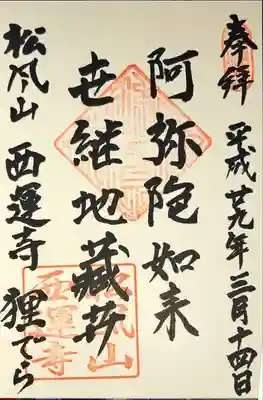 奉拝 平成廿九年三月十四日
阿弥陀如来
世継地蔵㐧
松風山 西運寺 狸でら
松風山
西運寺